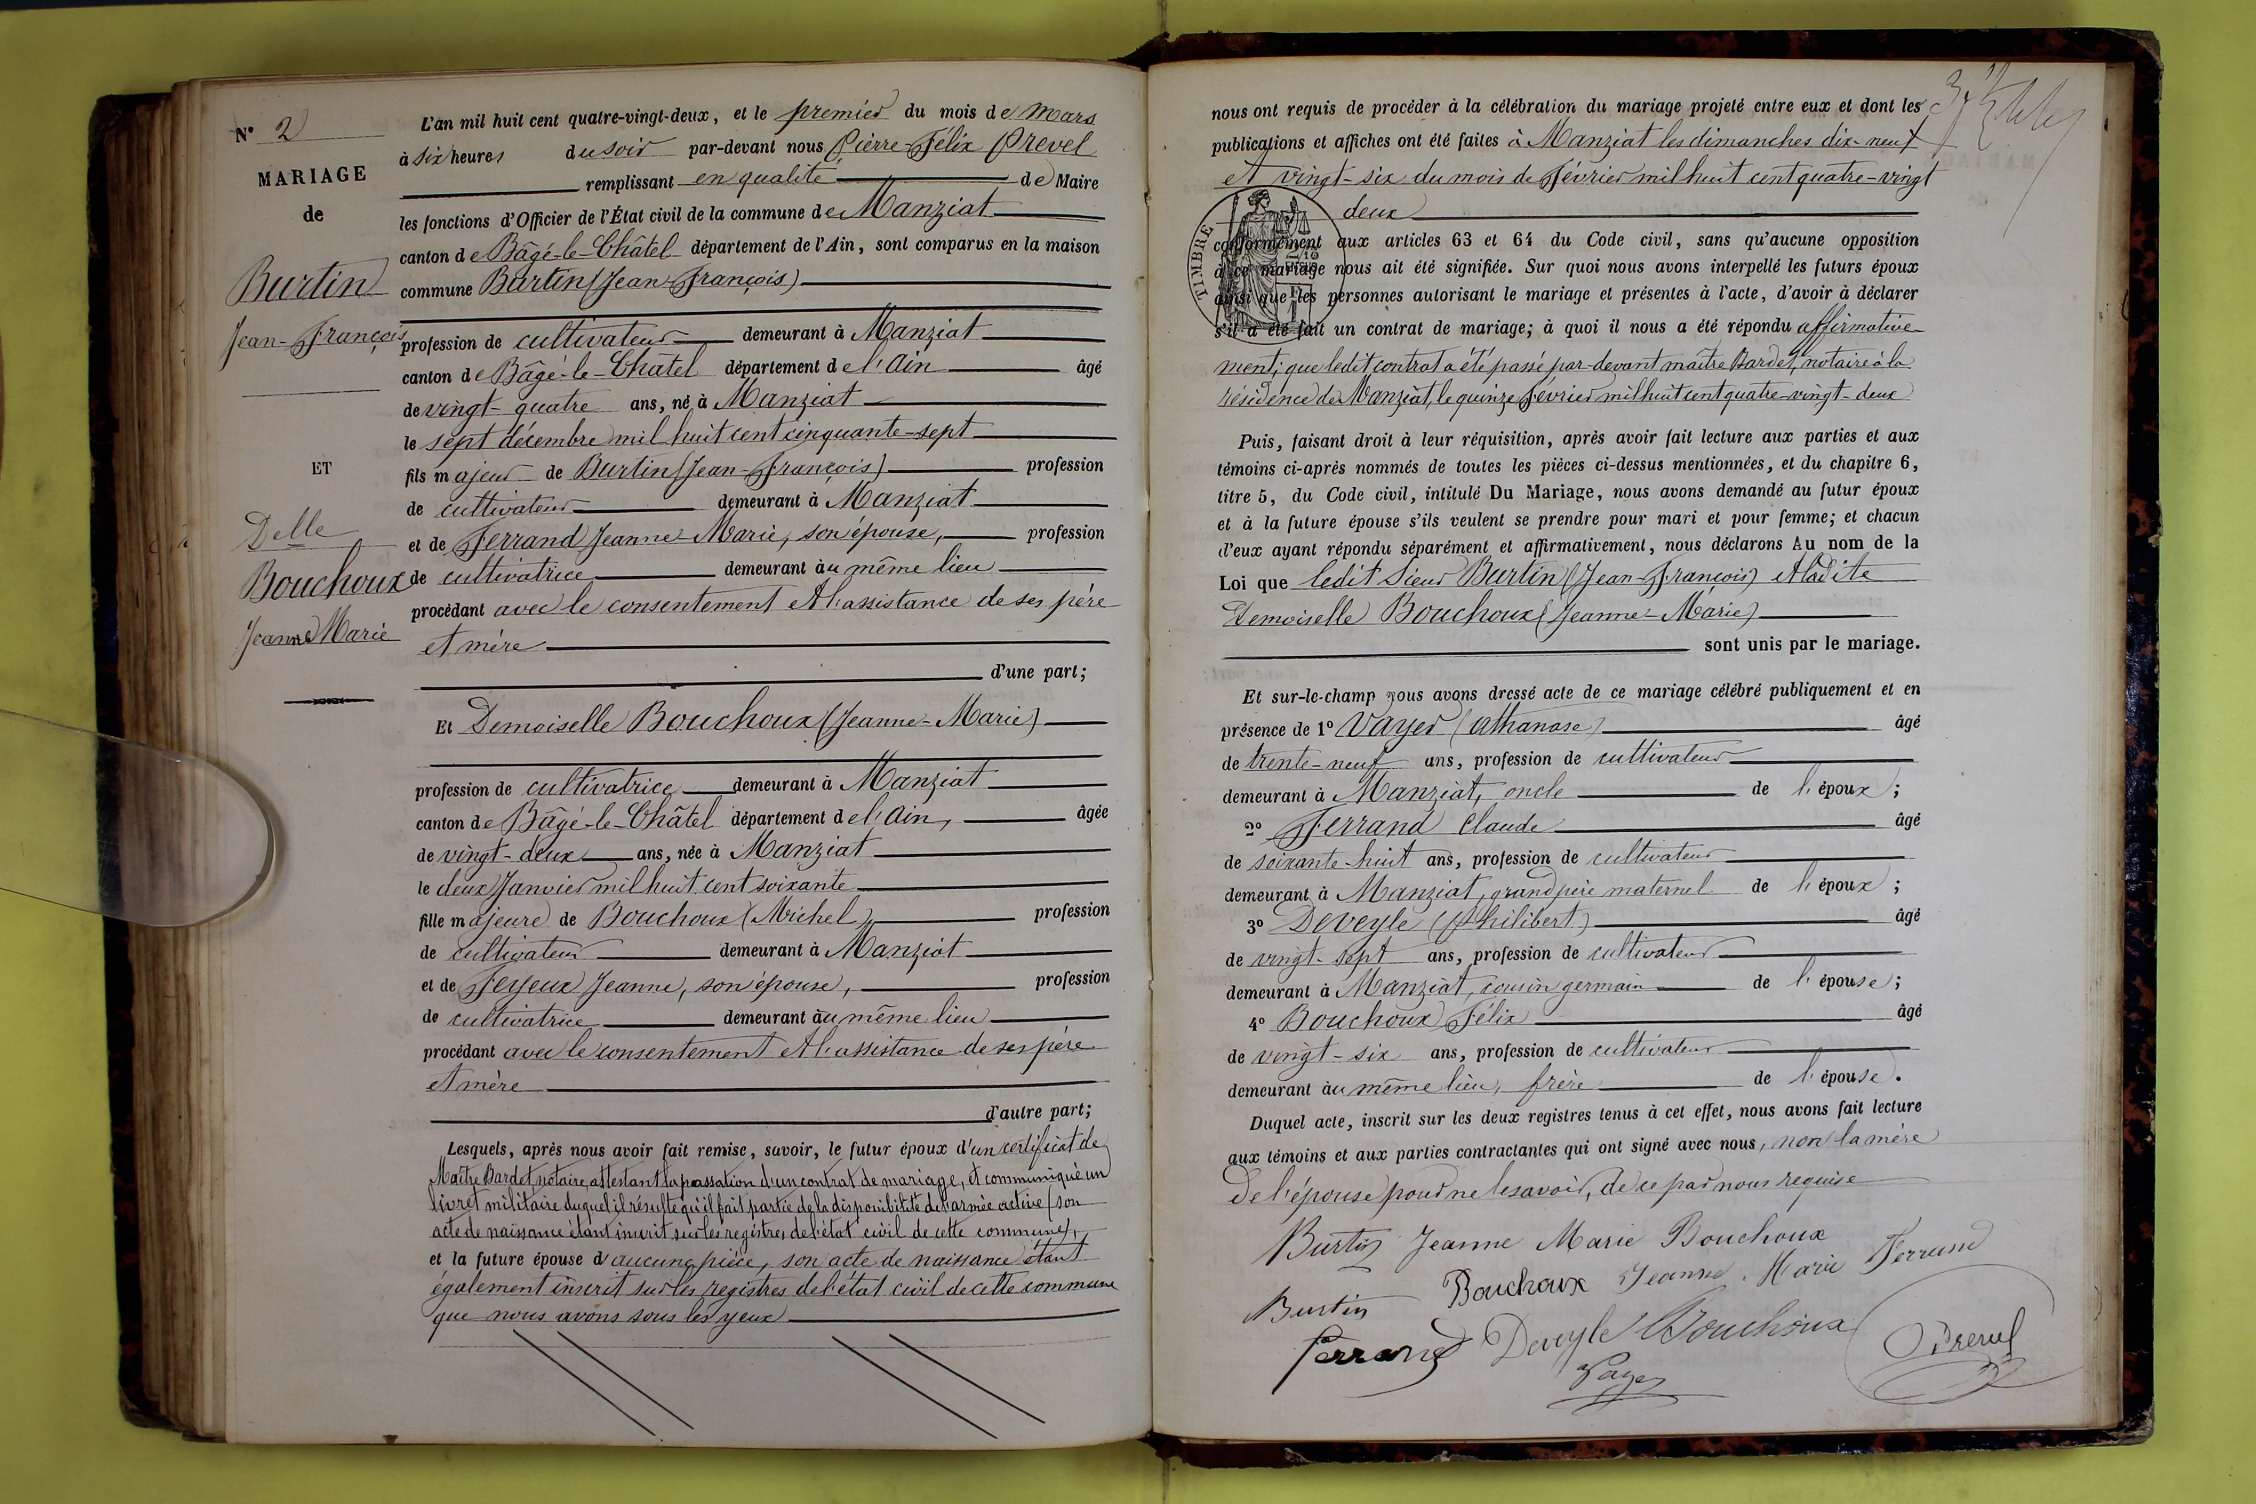 N° 2
MARIAGE
de
Burtin
Jean-François
ET
Delle
Bouchoux
Jeanne Marie
L'an mil huit cent quatre-vingt-deux, et le premier du mois de Mars
à six heures du soir par-devant nous Pierre-Félix Prevel
remplissant en qualité de Maire
les fonctions d'Officier de l'État civil de la commune de Manziat
canton de Bâgé-le-Châtel département de l'Ain, sont comparus en la maison
commune Burtin (Jean-François)
profession de cultivateur demeurant à Manziat
canton de Bâgé-le-Châtel département de l'Ain âgé
de vingt-quatre ans, né à Manziat
le sept décembre mil huit cent cinquante-sept
fils majeur de Burtin (Jean-François) profession
de cultivateur demeurant à Manziat
et de Ferrand Jeanne-Marie, son épouse, profession
de cultivatrice demeurant au même lieu
procédant avec le consentement et l'assistance de ses père
et mère
d'une part;
Et Demoiselle Bouchoux (Jeanne-Marie)
profession de cultivatrice demeurant à Manziat
canton de Bâgé-le-Châtel département de l'Ain, âgée
de vingt-deux ans, née à Manziat
le deux Janvier mil huit cent soixante
fille majeure de Bouchoux (Michel) profession
de cultivateur demeurant à Manziat
et de Feyeux Jeanne, son épouse, profession
de cultivatrice demeurant au même lieu
procédant avec le consentement et l'assistance de ses père
et mère
d'autre part;
Lesquels, après nous avoir fait remise, savoir, le futur époux d'un certificat de
Maître Bardet, notaire, attestant la passation d'un contrat de mariage, et communiqué un
livret militaire duquel il résulte qu'il fait partie de la disponibilité de l'armée active (son
acte de naissance étant inscrit sur les registres de l'état civil de cette commune),
et la future épouse d'aucune pièce, son acte de naissance étant
également inscrit sur les registres de l'état civil de cette commune
que nous avons sous les yeux
nous ont requis de procéder à la célébration du mariage projeté entre eux et dont les
publications et affiches ont été faites à Manziat les dimanches dix-neuf
et vingt-six du mois de Février mil huit cent quatre-vingt
deux
TIMBRE
conformément aux articles 63 et 64 du Code civil, sans qu'aucune opposition
à ce mariage nous ait été signifiée. Sur quoi nous avons interpellé les futurs époux
ainsi que les personnes autorisant le mariage et présentes à l'acte, d'avoir à déclarer
s'il a été fait un contrat de mariage; à quoi il nous a été répondu affirmative-
ment; que ledit contrat a été passé par-devant maître Bardet, notaire à la
résidence de Manziat, le quinze Février mil huit cent quatre-vingt-deux
Puis, faisant droit à leur réquisition, après avoir fait lecture aux parties et aux
témoins ci-après nommés de toutes les pièces ci-dessus mentionnées, et du chapitre 6,
titre 5, du Code civil, intitulé Du Mariage, nous avons demandé au futur époux
et à la future épouse s'ils veulent se prendre pour mari et pour femme; et chacun
d'eux ayant répondu séparément et affirmativement, nous déclarons Au nom de la
Loi que ledit Sieur Burtin (Jean-François) et ladite
Demoiselle Bouchoux (Jeanne-Marie)
sont unis par le mariage.
Et sur-le-champ nous avons dressé acte de ce mariage célébré publiquement et en
présence de 1° Vayer (Athanase) âgé
de trente-neuf ans, profession de cultivateur
demeurant à Manziat, oncle de l'époux;
2° Ferrand Claude âgé
de soixante-huit ans, profession de cultivateur
demeurant à Manziat, grand père maternel de l'époux;
3° Deveyle (Philibert) âgé
de vingt-sept ans, profession de cultivateur
demeurant à Manziat, cousin germain de l'épouse;
4° Bouchoux Félix âgé
de vingt-six ans, profession de cultivateur
demeurant au même lieu, frère de l'épouse.
Duquel acte, inscrit sur les deux registres tenus à cet effet, nous avons fait lecture
aux témoins et aux parties contractantes qui ont signé avec nous, non la mère
de l'épouse pour ne le savoir, de ce par nous requise
Burtin Jeanne Marie Bouchoux
Burtin Bouchoux Jeanne Marie Ferrand
Ferrand Deveyle Bouchoux Prevel
Vayer